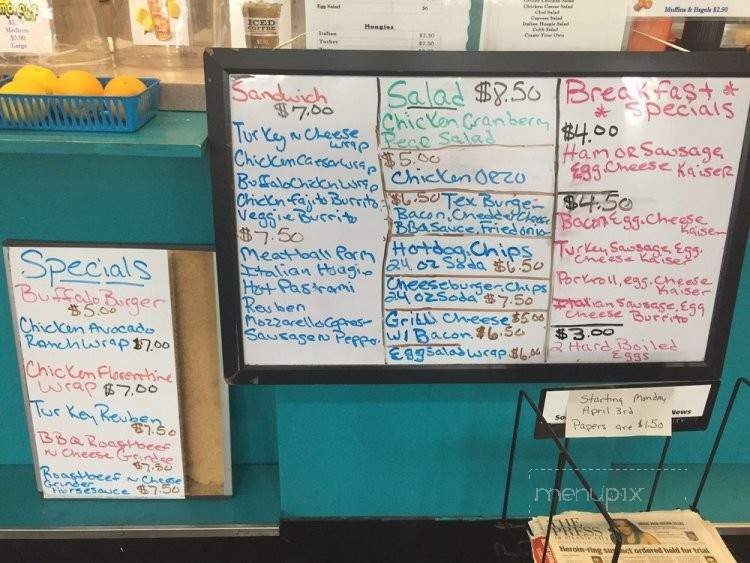 Medium
$3.90
Large
ICED
COFFEE
Egg Salad $6
Hoagies
Italian $7.50
Turkey $7.50
Chicken Caesar Salad
Chef Salad
Caprese Salad
Italian Hoagie Salad
Cobb Salad
Create Your Own
Muffins & Bagels $2.50
Specials
Buffalo Burger
$5.00
Chicken Avocado
Ranch Wrap $7.00
Chicken Florentine
Wrap $7.00
Turkey Reuben
$7.50
BBQ Roastbeef
N Cheese Grinder
$7.50
Roastbeef N Cheese
Grinder
Horsesauce $7.50
Sandwich
$7.00
Turkey N Cheese
Wrap
Chicken Caesar Wrap
Buffalo Chickn Wrap
Chickn Fajito Burrito
Veggie Burrito
$7.50
Meatball Parm
Italian Hoagie
Hot Pastrami
Reuben
Mozzarella Capress
Sausage N Peppo.
Salad $8.50
Chicken Cranberry
Pear Salad
$5.00
Chicken Orzo
$6.50 Tex Burger-
Bacon, Cheddar Cheese
BBQ Sauce, Friedonio
Hotdog, Chips
24 oz Soda $6.50
Cheeseburger, Chips
24 oz Soda $7.50
Grill Cheese $5.00
w/ Bacon $6.50
Egg Salad Wrap $6.00
Breakfast *
* Specials
$4.00
Ham or Sausage
Egg Cheese Kaiser
$4.50
Bacon, Egg, Cheese
Kaiser
Turkey Sausage, Egg,
Cheese Kaiser
Porkroll, egg, cheese
Kaiser
Italian Sausage, Egg
Cheese Burrito
$3.00
2 Hard Boiled
Eggs
Starting Monday
April 3rd
Papers are $1.50
News
menupix
Heroin-ring suspect ordered held for trial